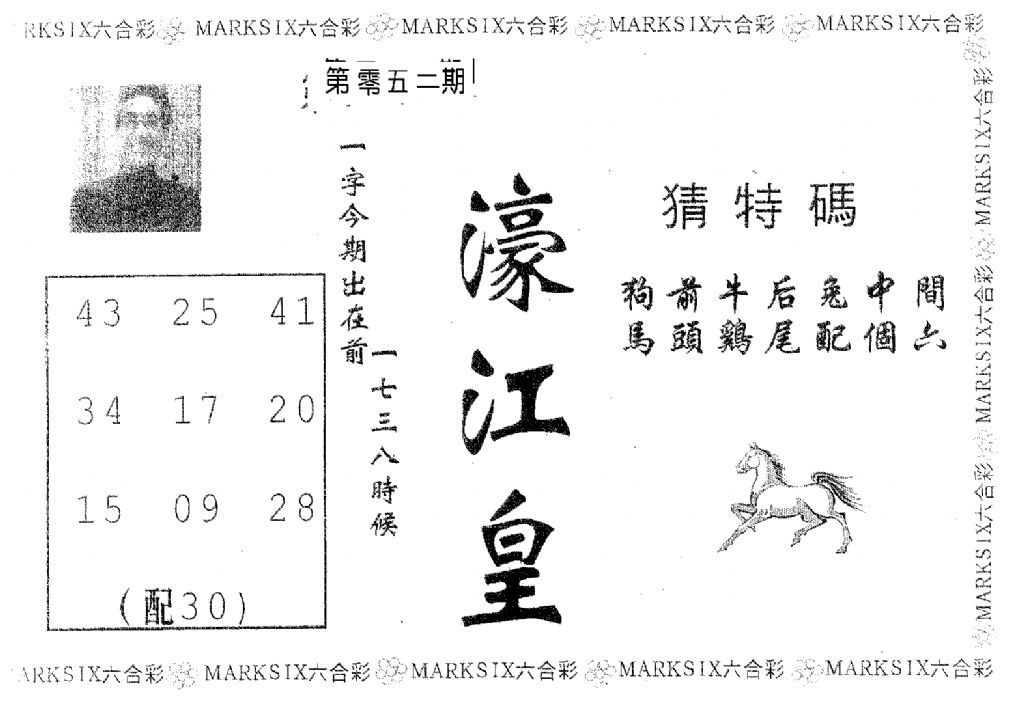 RKSIX六合彩 MARKSIX六合彩 MARKSIX六合彩 MARKSIX六合彩 MARKSIX六合彩
第零五二期
一字今期出在前
一七三八時候
濠江皇
猜特碼
狗前牛后兔中間
馬頭鷄尾配個六
43 25 41
34 17 20
15 09 28
(配30)
MARKSIX六合彩 MARKSIX六合彩 MARKSIX六合彩
ARKSIX六合彩 MARKSIX六合彩 MARKSIX六合彩 MARKSIX六合彩 MARKSIX六合彩